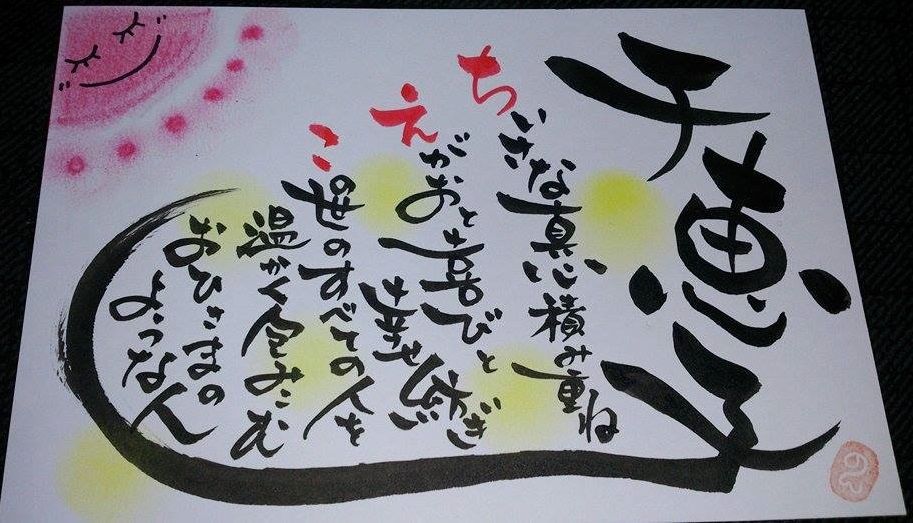 千恵子
ちいさな真心積み重ね
えがおと喜びと
幸せ紡ぎ
この世のすべての人を
温かく包みこむ
おひさまの
ような人